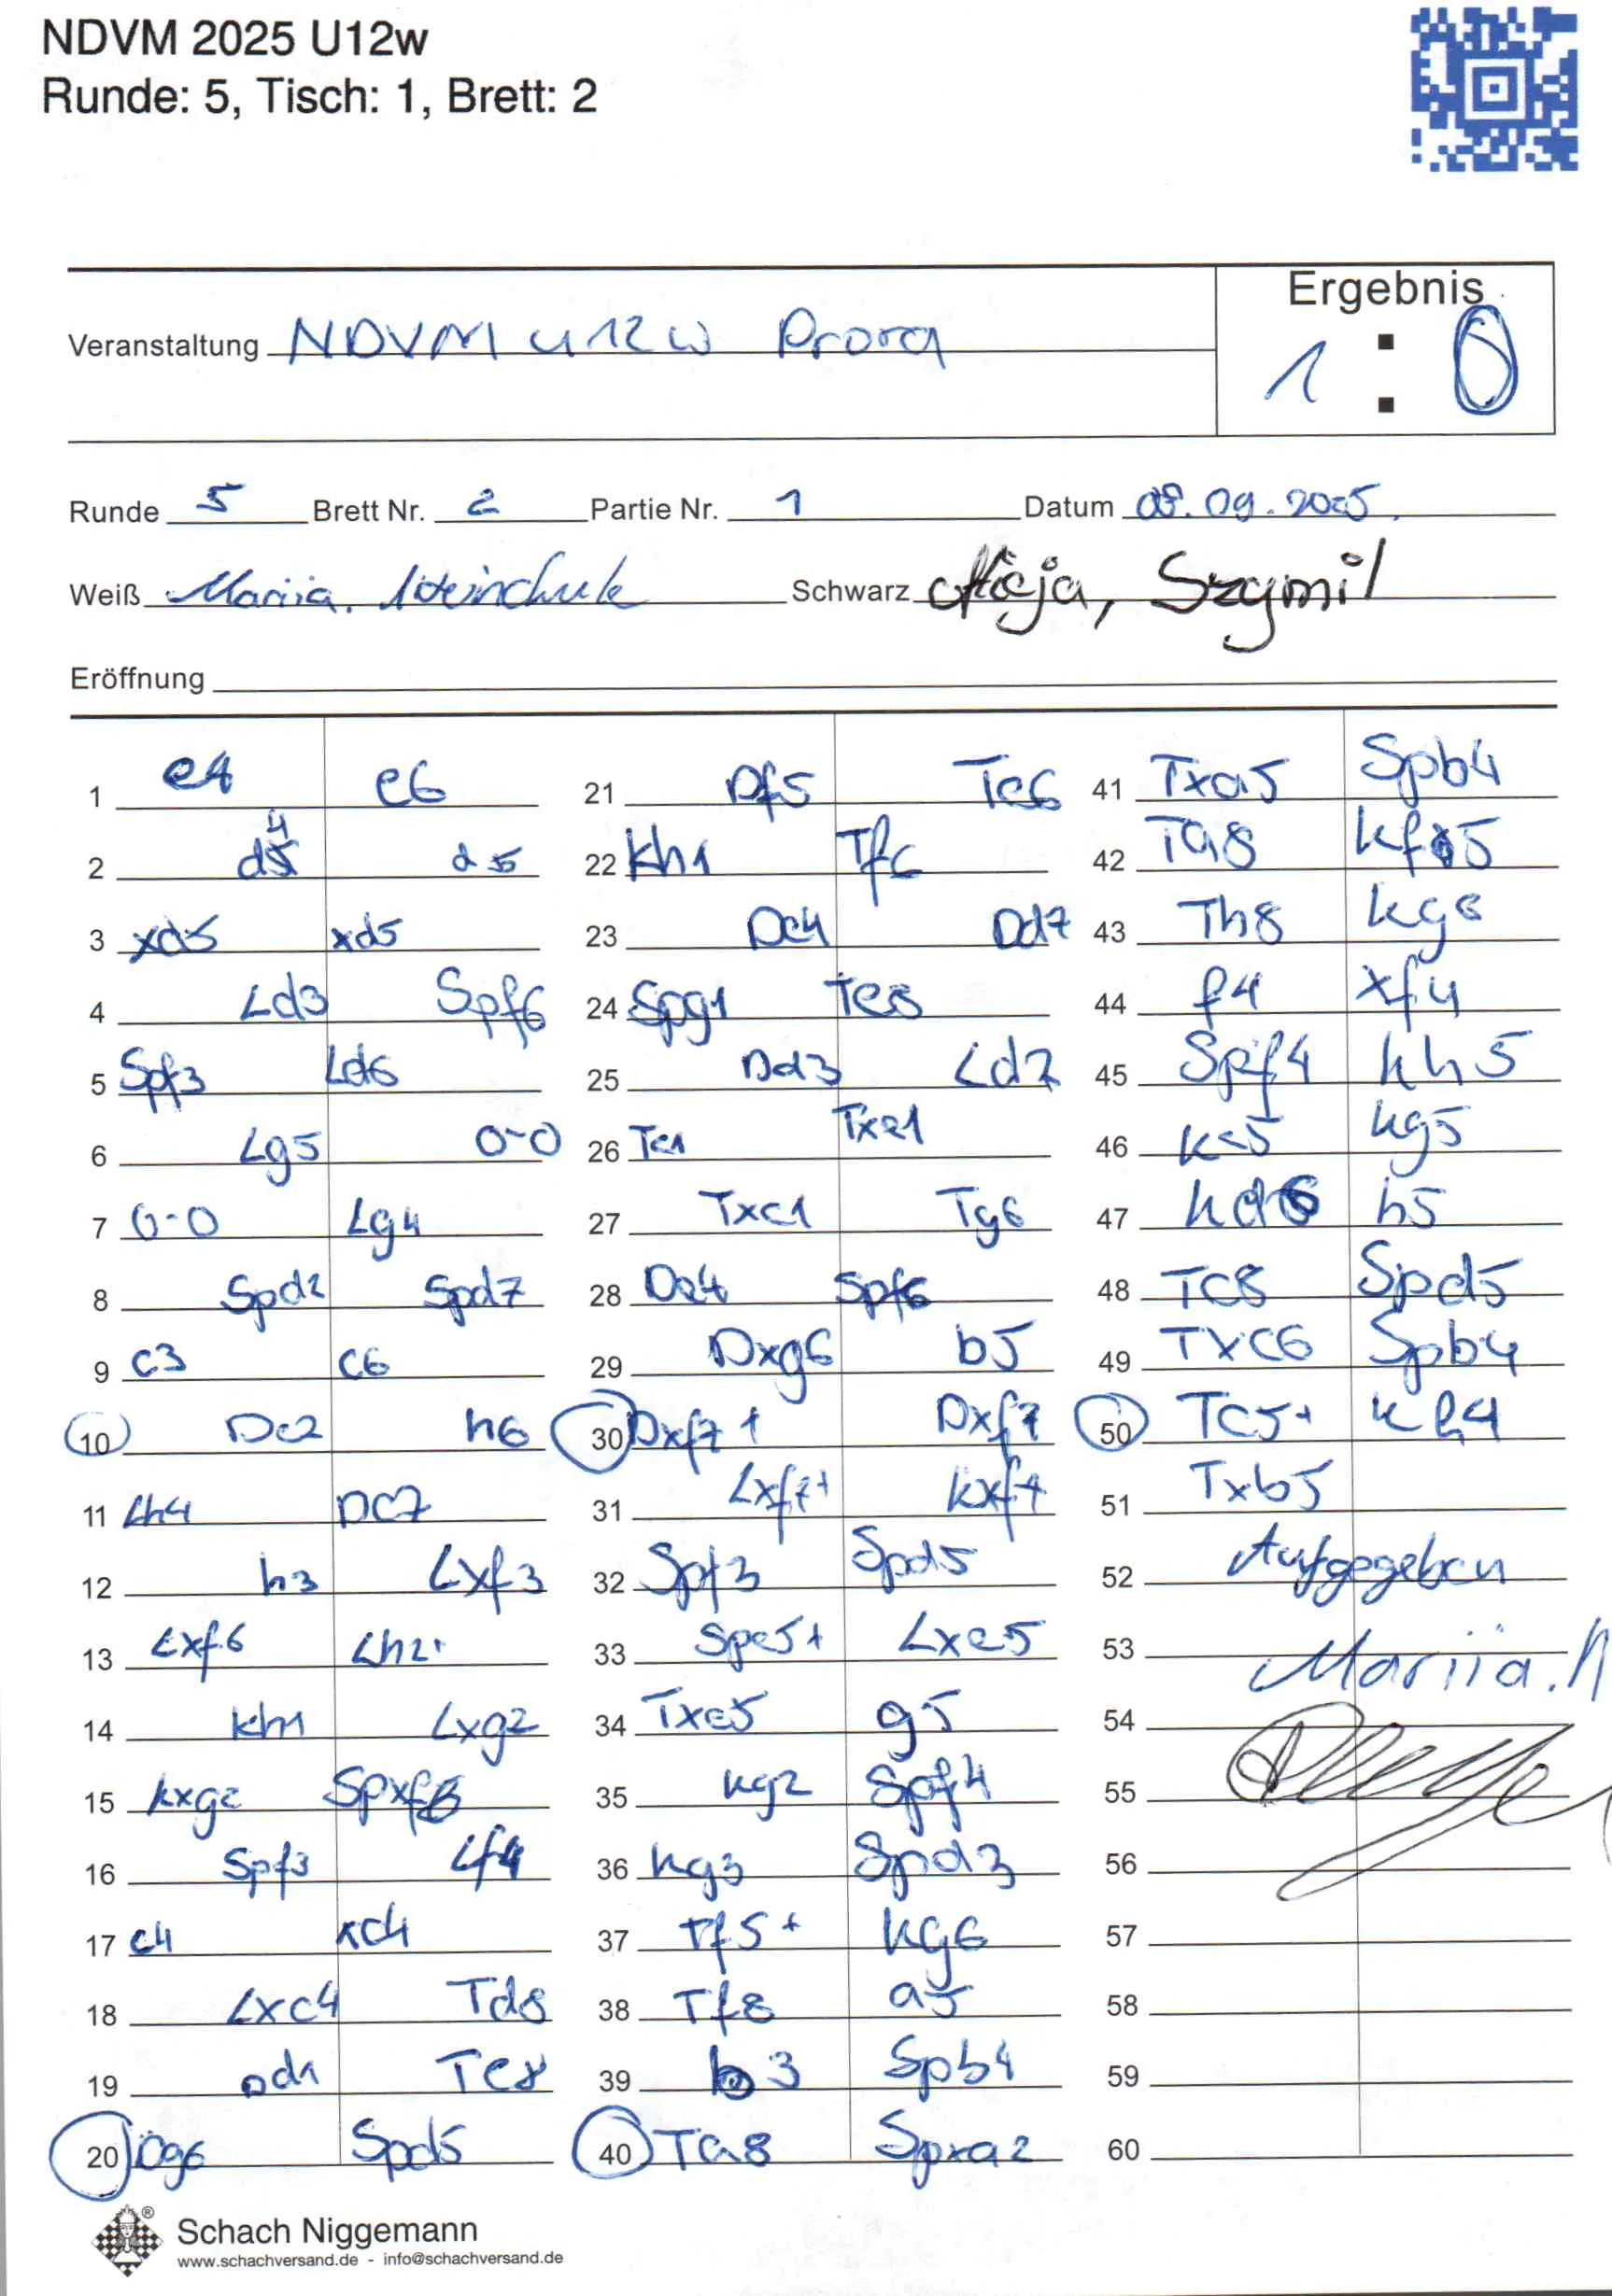 NDVM 2025 U12w
Runde: 5, Tisch: 1, Brett: 2
Ergebnis
Veranstaltung NDVM U12W Prora
1 : 0
Runde 5 Brett Nr. 2 Partie Nr. 1 Datum 08.09.2025.
Weiß Mariia. Schwarz Szymil
Eröffnung
1 e4 e6
2 d4 d5
3 xd5 xd5
4 Ld3 Spf6
5 Spf3 Ld6
6 Lg5 0-0
7 0-0 Lg4
8 Spd2 Spd7
9 c3 c6
10 Dc2 h6
11 Lh4 DC7
12 h3 Lxf3
13 Lxf6 Lh2+
14 Kh1 Lxg2
15 Kxg2 Spxf6
16 Spf3 Lf4
17 c4 xc4
18 Lxc4 Td8
19 Dd1 Te8
20 Dg6 Spd5
21 Df5 Te6
22 Kh1 Tf6
23 De4 Dd7
24 Spg1 Te8
25 Dd3 Ld7
26 Te1 Txe1
27 Txe1 Tg6
28 De4 Spf6
29 Dxg6 b5
30 Dxf7+ Dxf7
31 Lxf7+ Kxf7
32 Spf3 Spd5
33 Spe5+ Lxe5
34 Txe5 g5
35 Kg2 Spf4
36 Kg3 Spd3
37 Tf5+ Kg6
38 Tf8 a5
39 b3 Spb4
40 Ta8 Spxa2
41 Txa5 Spb4
42 Ta8 Kf5
43 Th8 Kg6
44 f4 xf4
45 Spf4 Kh5
46 Ke5 Kg5
47 Kd6 h5
48 TC8 Spd5
49 TXC6 Spb4
50 TC5+ Kh4
51 Txb5
52 Aufgegeben
53 Mariia.
54
55
56
57
58
59
60
Schach Niggemann
www.schachversand.de - info@schachversand.de